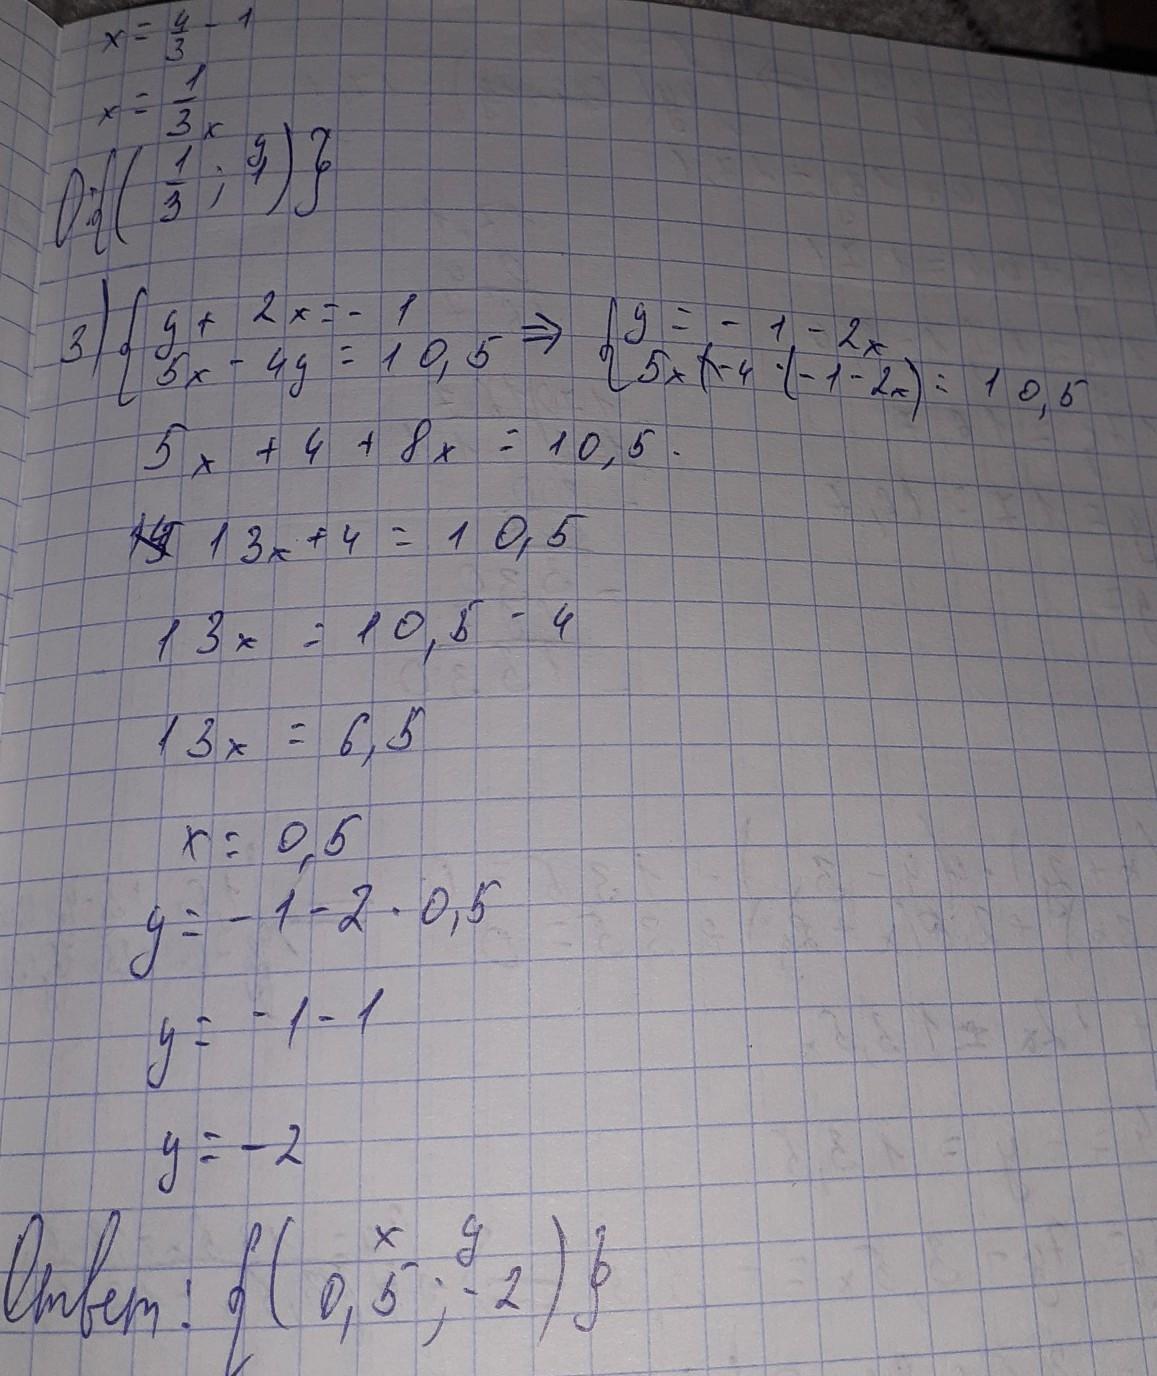 x = 4/3 - 1
x = 1/3
x y
О: {(1/3 ; 1)}
3) { y + 2x = - 1 ⇒ { y = - 1 - 2x
{ 5x - 4y = 10,5 { 5x - 4 · (- 1 - 2x) = 10,5
5x + 4 + 8x = 10,5.
13x + 4 = 10,5
13x = 10,5 - 4
13x = 6,5
x = 0,5
y = - 1 - 2 · 0,5
y = - 1 - 1
y = - 2
x y
Ответ: {( 0,5 ; - 2 )}